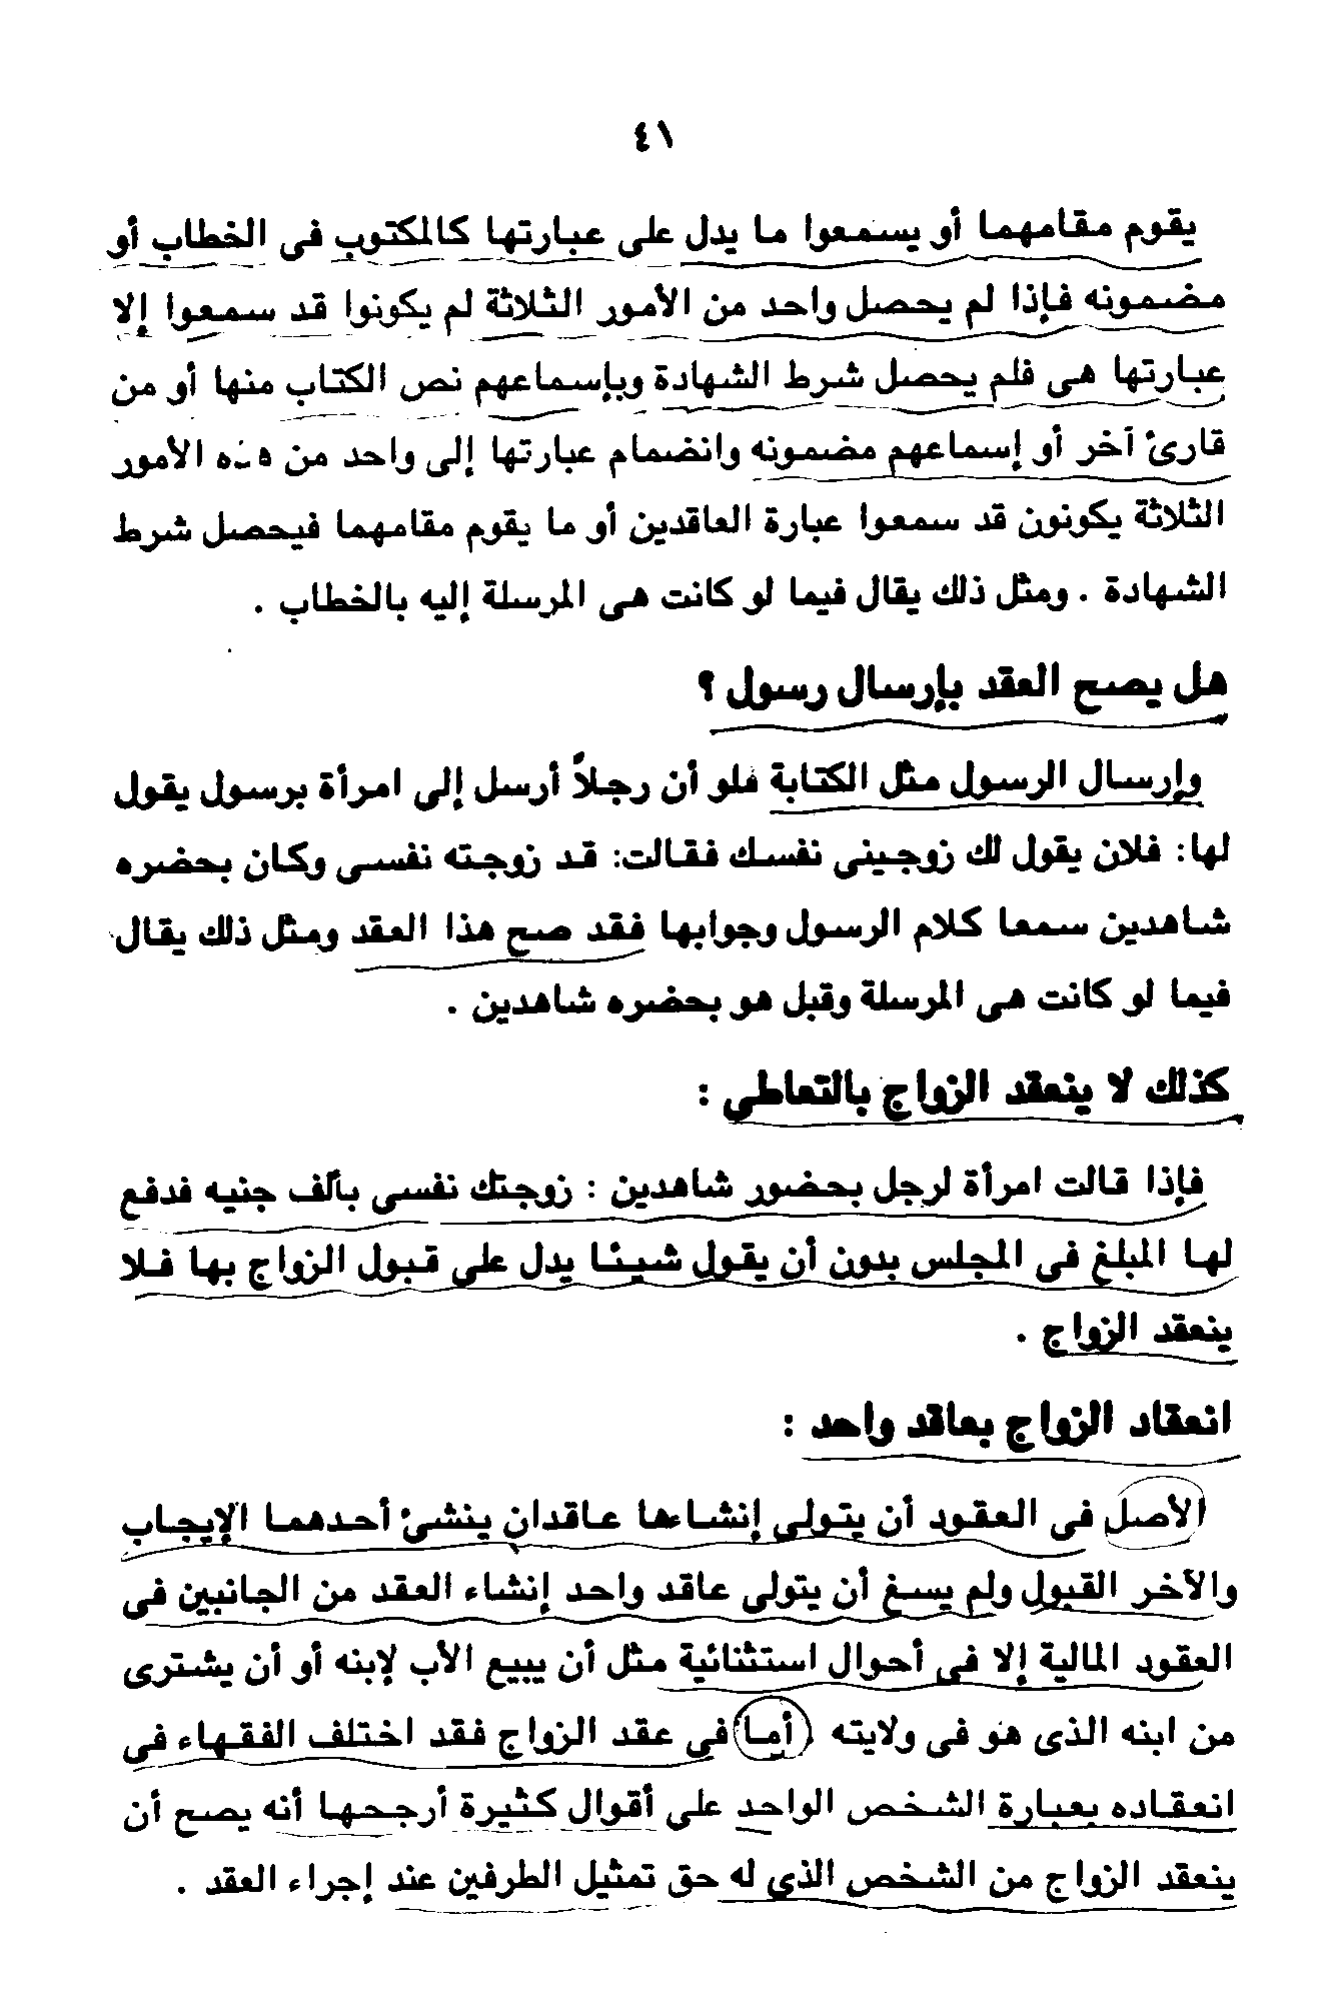 ٤١
يقوم مقامهما أو يسمعوا ما يدل على عبارتها كالمكتوب فى الخطاب أو
مضمونه فإذا لم يحصل واحد من الأمور الثلاثة لم يكونوا قد سمعوا إلا
عبارتها هى فلم يحصل شرط الشهادة وبإسماعهم نص الكتاب منها أو من
قارئ آخر أو إسماعهم مضمونه وانضمام عبارتها إلى واحد من هذه الأمور
الثلاثة يكونون قد سمعوا عبارة العاقدين أو ما يقوم مقامهما فيحصل شرط
الشهادة . ومثل ذلك يقال فيما لو كانت هى المرسلة إليه بالخطاب .
هل يصح العقد بإرسال رسول ؟
وإرسال الرسول مثل الكتابة فلو أن رجلاً أرسل إلى امرأة برسول يقول
لها: فلان يقول لك زوجينى نفسك فقالت: قد زوجته نفسى وكان بحضره
شاهدين سمعا كلام الرسول وجوابها فقد صح هذا العقد ومثل ذلك يقال
فيما لو كانت هى المرسلة وقبل هو بحضره شاهدين .
كذلك لا ينعقد الزواج بالتعاطى :
فإذا قالت امرأة لرجل بحضور شاهدين : زوجتك نفسى بألف جنيه فدفع
لها المبلغ فى المجلس بدون أن يقول شيئا يدل على قبول الزواج بها فلا
ينعقد الزواج .
انعقاد الزواج بعاقد واحد :
الأصل فى العقود أن يتولى إنشاءها عاقدان ينشئ أحدهما الإيجاب
والآخر القبول ولم يسغ أن يتولى عاقد واحد إنشاء العقد من الجانبين فى
العقود المالية إلا فى أحوال استثنائية مثل أن يبيع الأب لإبنه أو أن يشترى
من ابنه الذى هو فى ولايته ( أما فى عقد الزواج فقد اختلف الفقهاء فى
انعقاده بعبارة الشخص الواحد على أقوال كثيرة أرجحها أنه يصح أن
ينعقد الزواج من الشخص الذى له حق تمثيل الطرفين عند إجراء العقد .